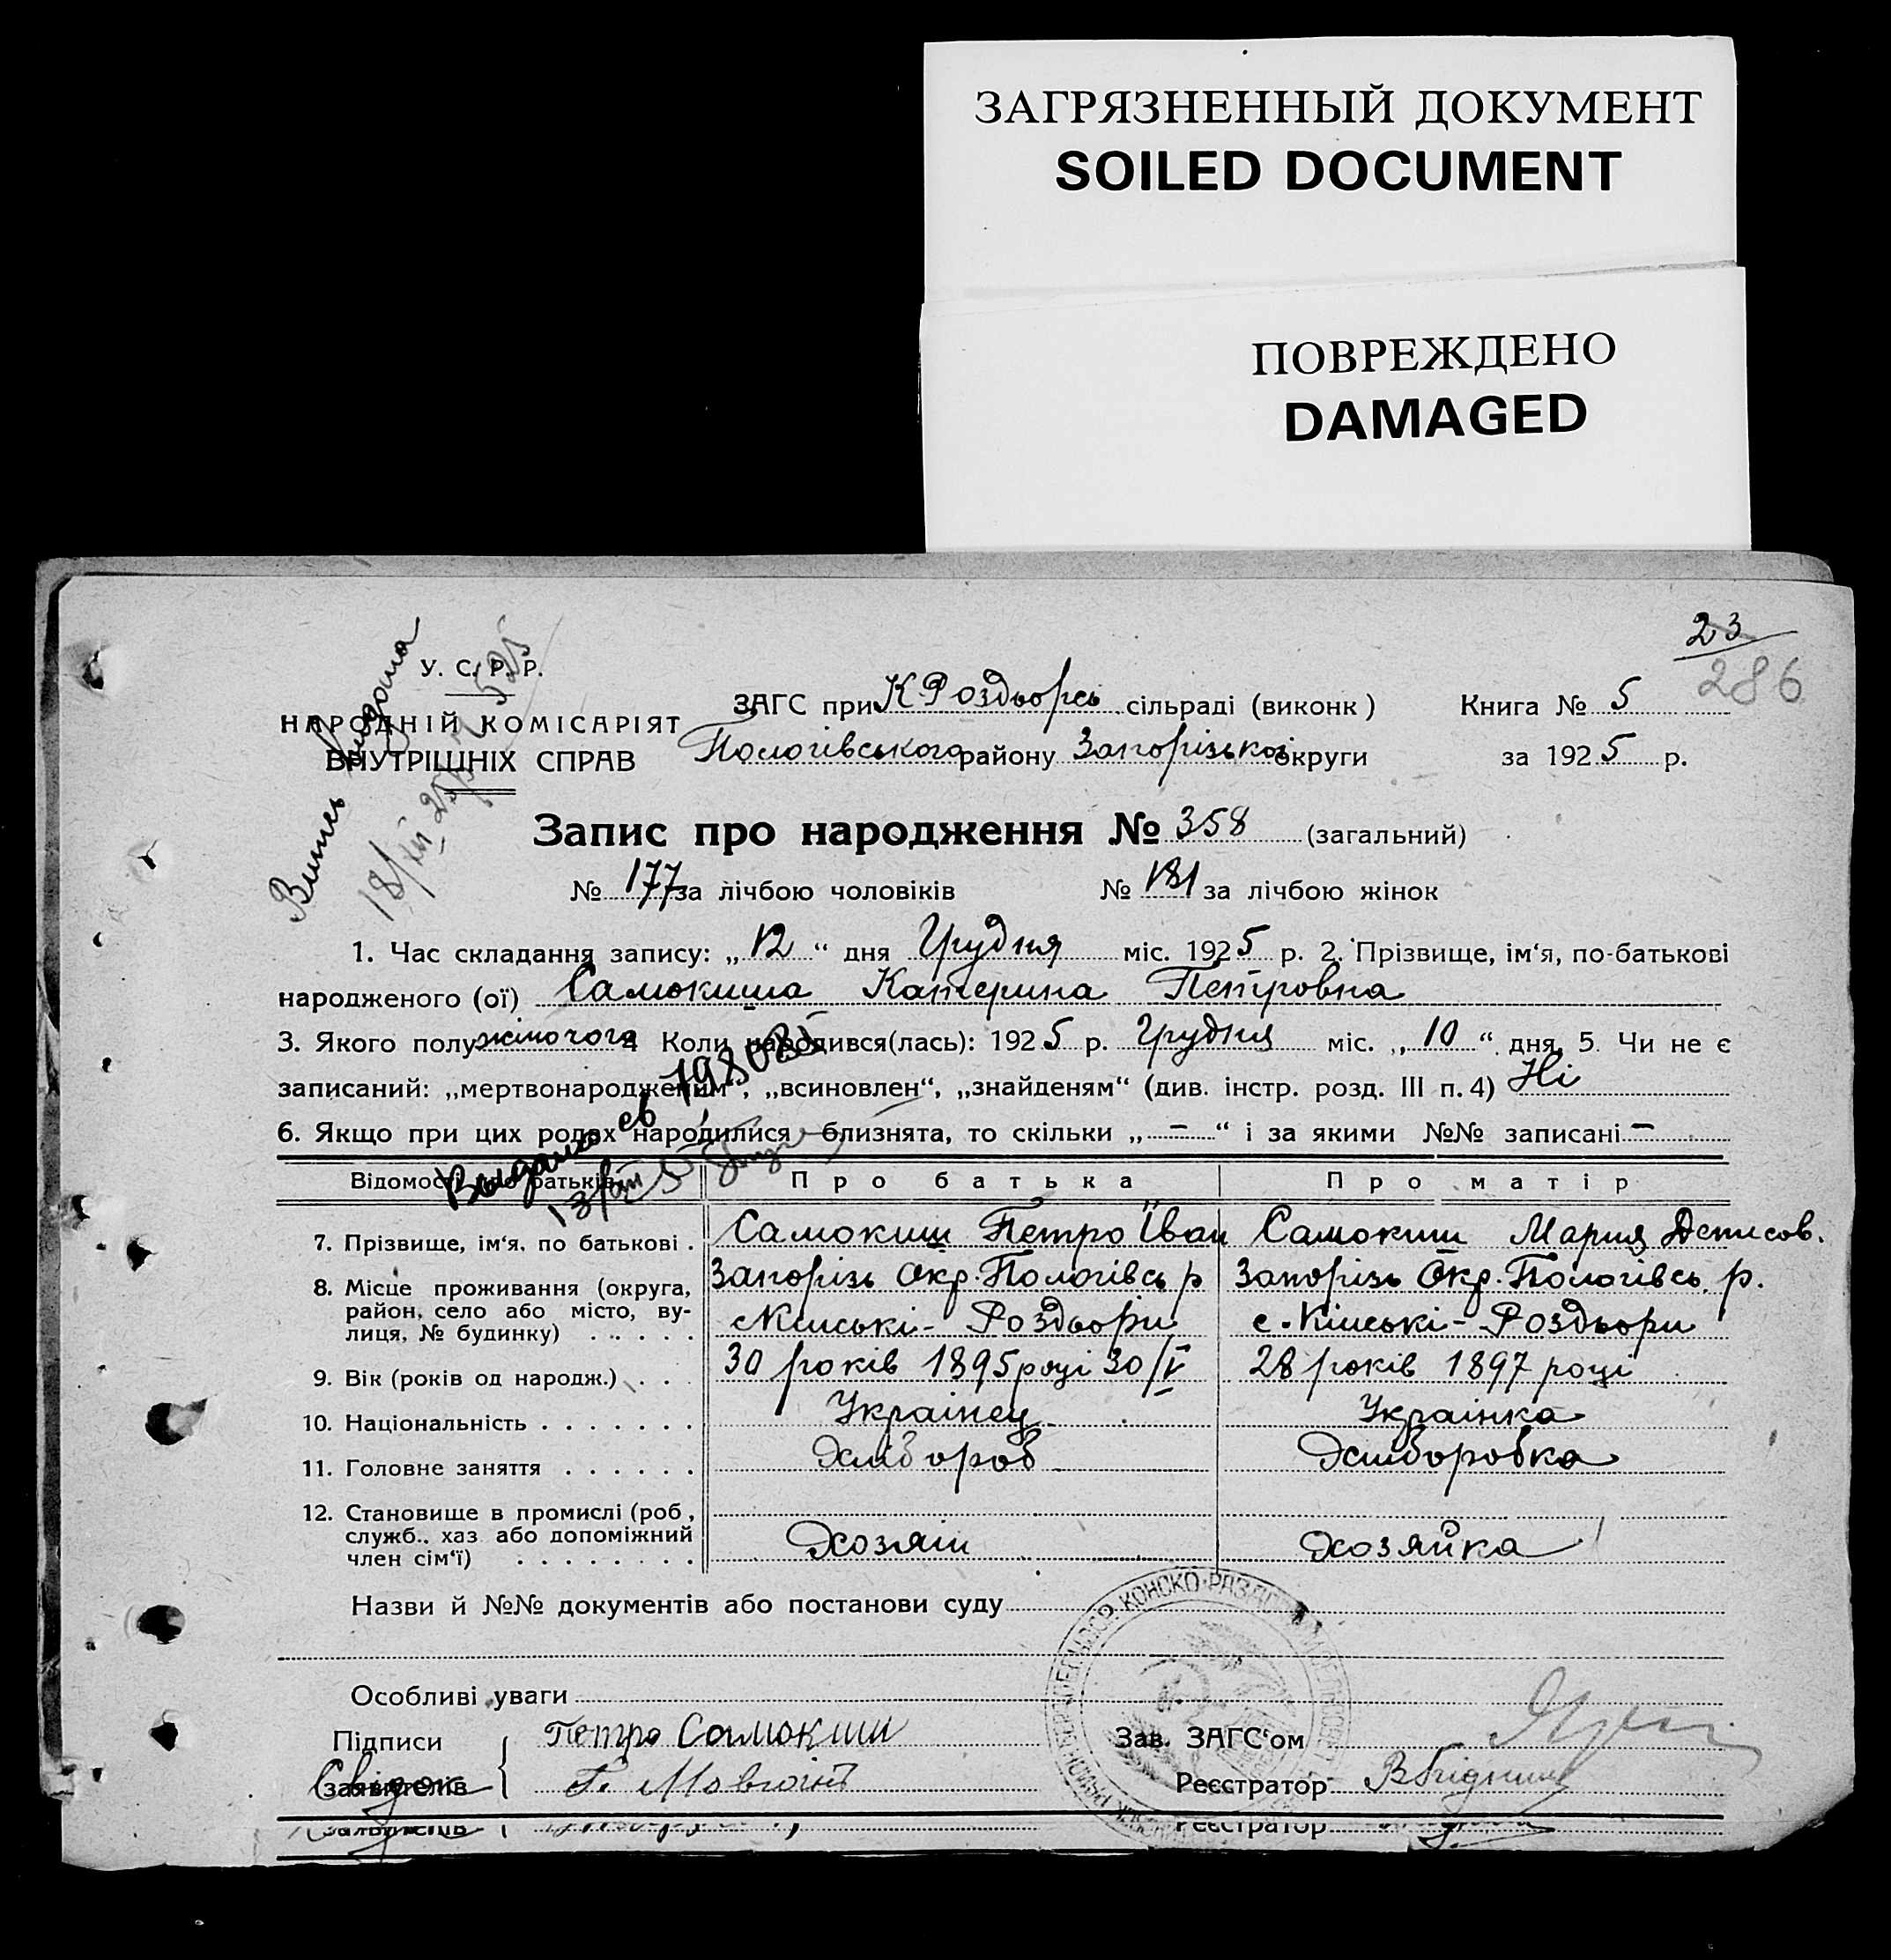 ЗАГРЯЗНЕННЫЙ ДОКУМЕНТ
SOILED DOCUMENT
ПОВРЕЖДЕНО
DAMAGED
23
286
У. С. Р. Р.
НАРОДНІЙ КОМІСАРІЯТ
ВНУТРІШНІХ СПРАВ
ЗАГС при К Роздорсь сільраді (виконк) Книга № 5
Пологівського району Запорізької округи за 1925 р.
Запис про народження № 358 (загальний)
№ 177 за лічбою чоловіків № 181 за лічбою жінок
1. Час складання запису: „12“ дня Грудня міс. 1925 р. 2. Прізвище, ім‘я, по-батькові
народженого (ої) Самокиша Катерина Петровна
3. Якого полу жіночого 4 Коли народився(лась): 1925 р. Грудня міс. „10“ дня, 5. Чи не є
записаний: „мертвонародженим“, „всиновлен“, „знайденям“ (див. інстр. розд. III п. 4) Ні
6. Якщо при цих родах народилися близнята, то скільки „–“ і за якими №№ записані –
Відомості про батьків Про батька Про матір
7. Прізвище, ім‘я, по батькові . Самокиш Петро Іван Самокиш Мария Денисов.
8. Місце проживання (округа, Запорізь Окр. Пологівсь р Запорізь Окр. Пологівсь. р.
район, село або місто, ву-
лиця, № будинку) . . . . . с Кінські-Роздори с. Кінські-Роздори
9. Вік (років од народж.) . . . 30 років 1895 році 30/V 28 років 1897 році
10. Національність . . . . . . . Українец Українка
11. Головне заняття . . . . . . Хлібороб Хлиборобка
12. Становище в промислі (роб.,
служб., хаз або допоміжний
член сім‘ї) . . . . . . . . Хозяін Хозяйка
Назви й №№ документів або постанови суду
Особливі уваги
Підписи Петро Самокиш Зав. ЗАГС‘ом
заявителів Реєстратор
Реєстратор